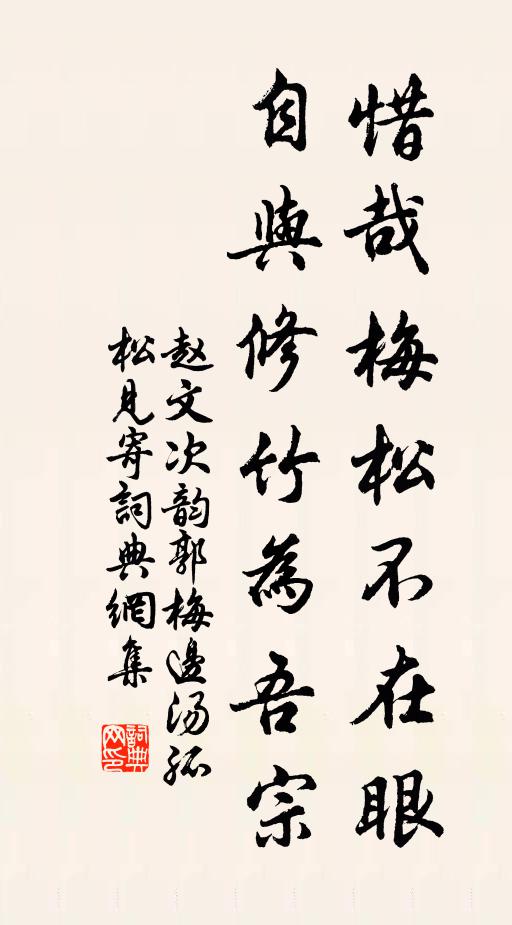 惜哉梅松不在眼
自與修竹為吾宗
赵文次韵郭梅邊汤孤
松見寄詞典網集
詞典
网印